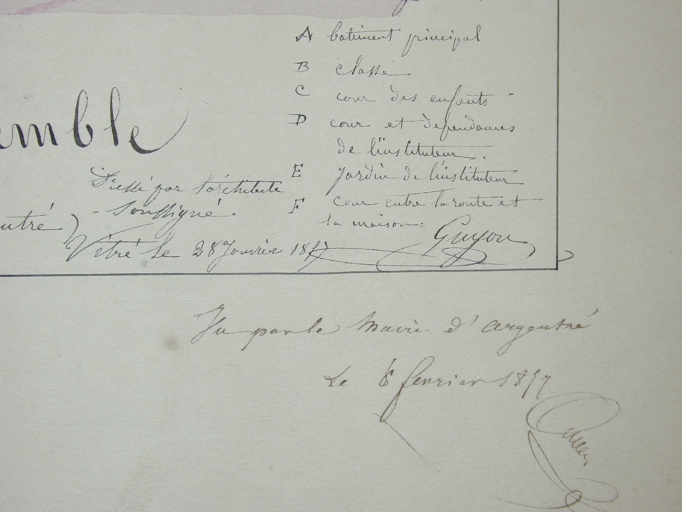 A batiment principal
B classe
C cour des enfants
D cour et dependances
de l'instituteur.
E Jardin de l'instituteur
F Cour entre la route et
la maison.
emble
Dressé par l'architecte
soussigné.
Vitré le 28 Janvier 1857
Guyou
Vu par le Maire d'argentré
Le 8 fevrier 1857